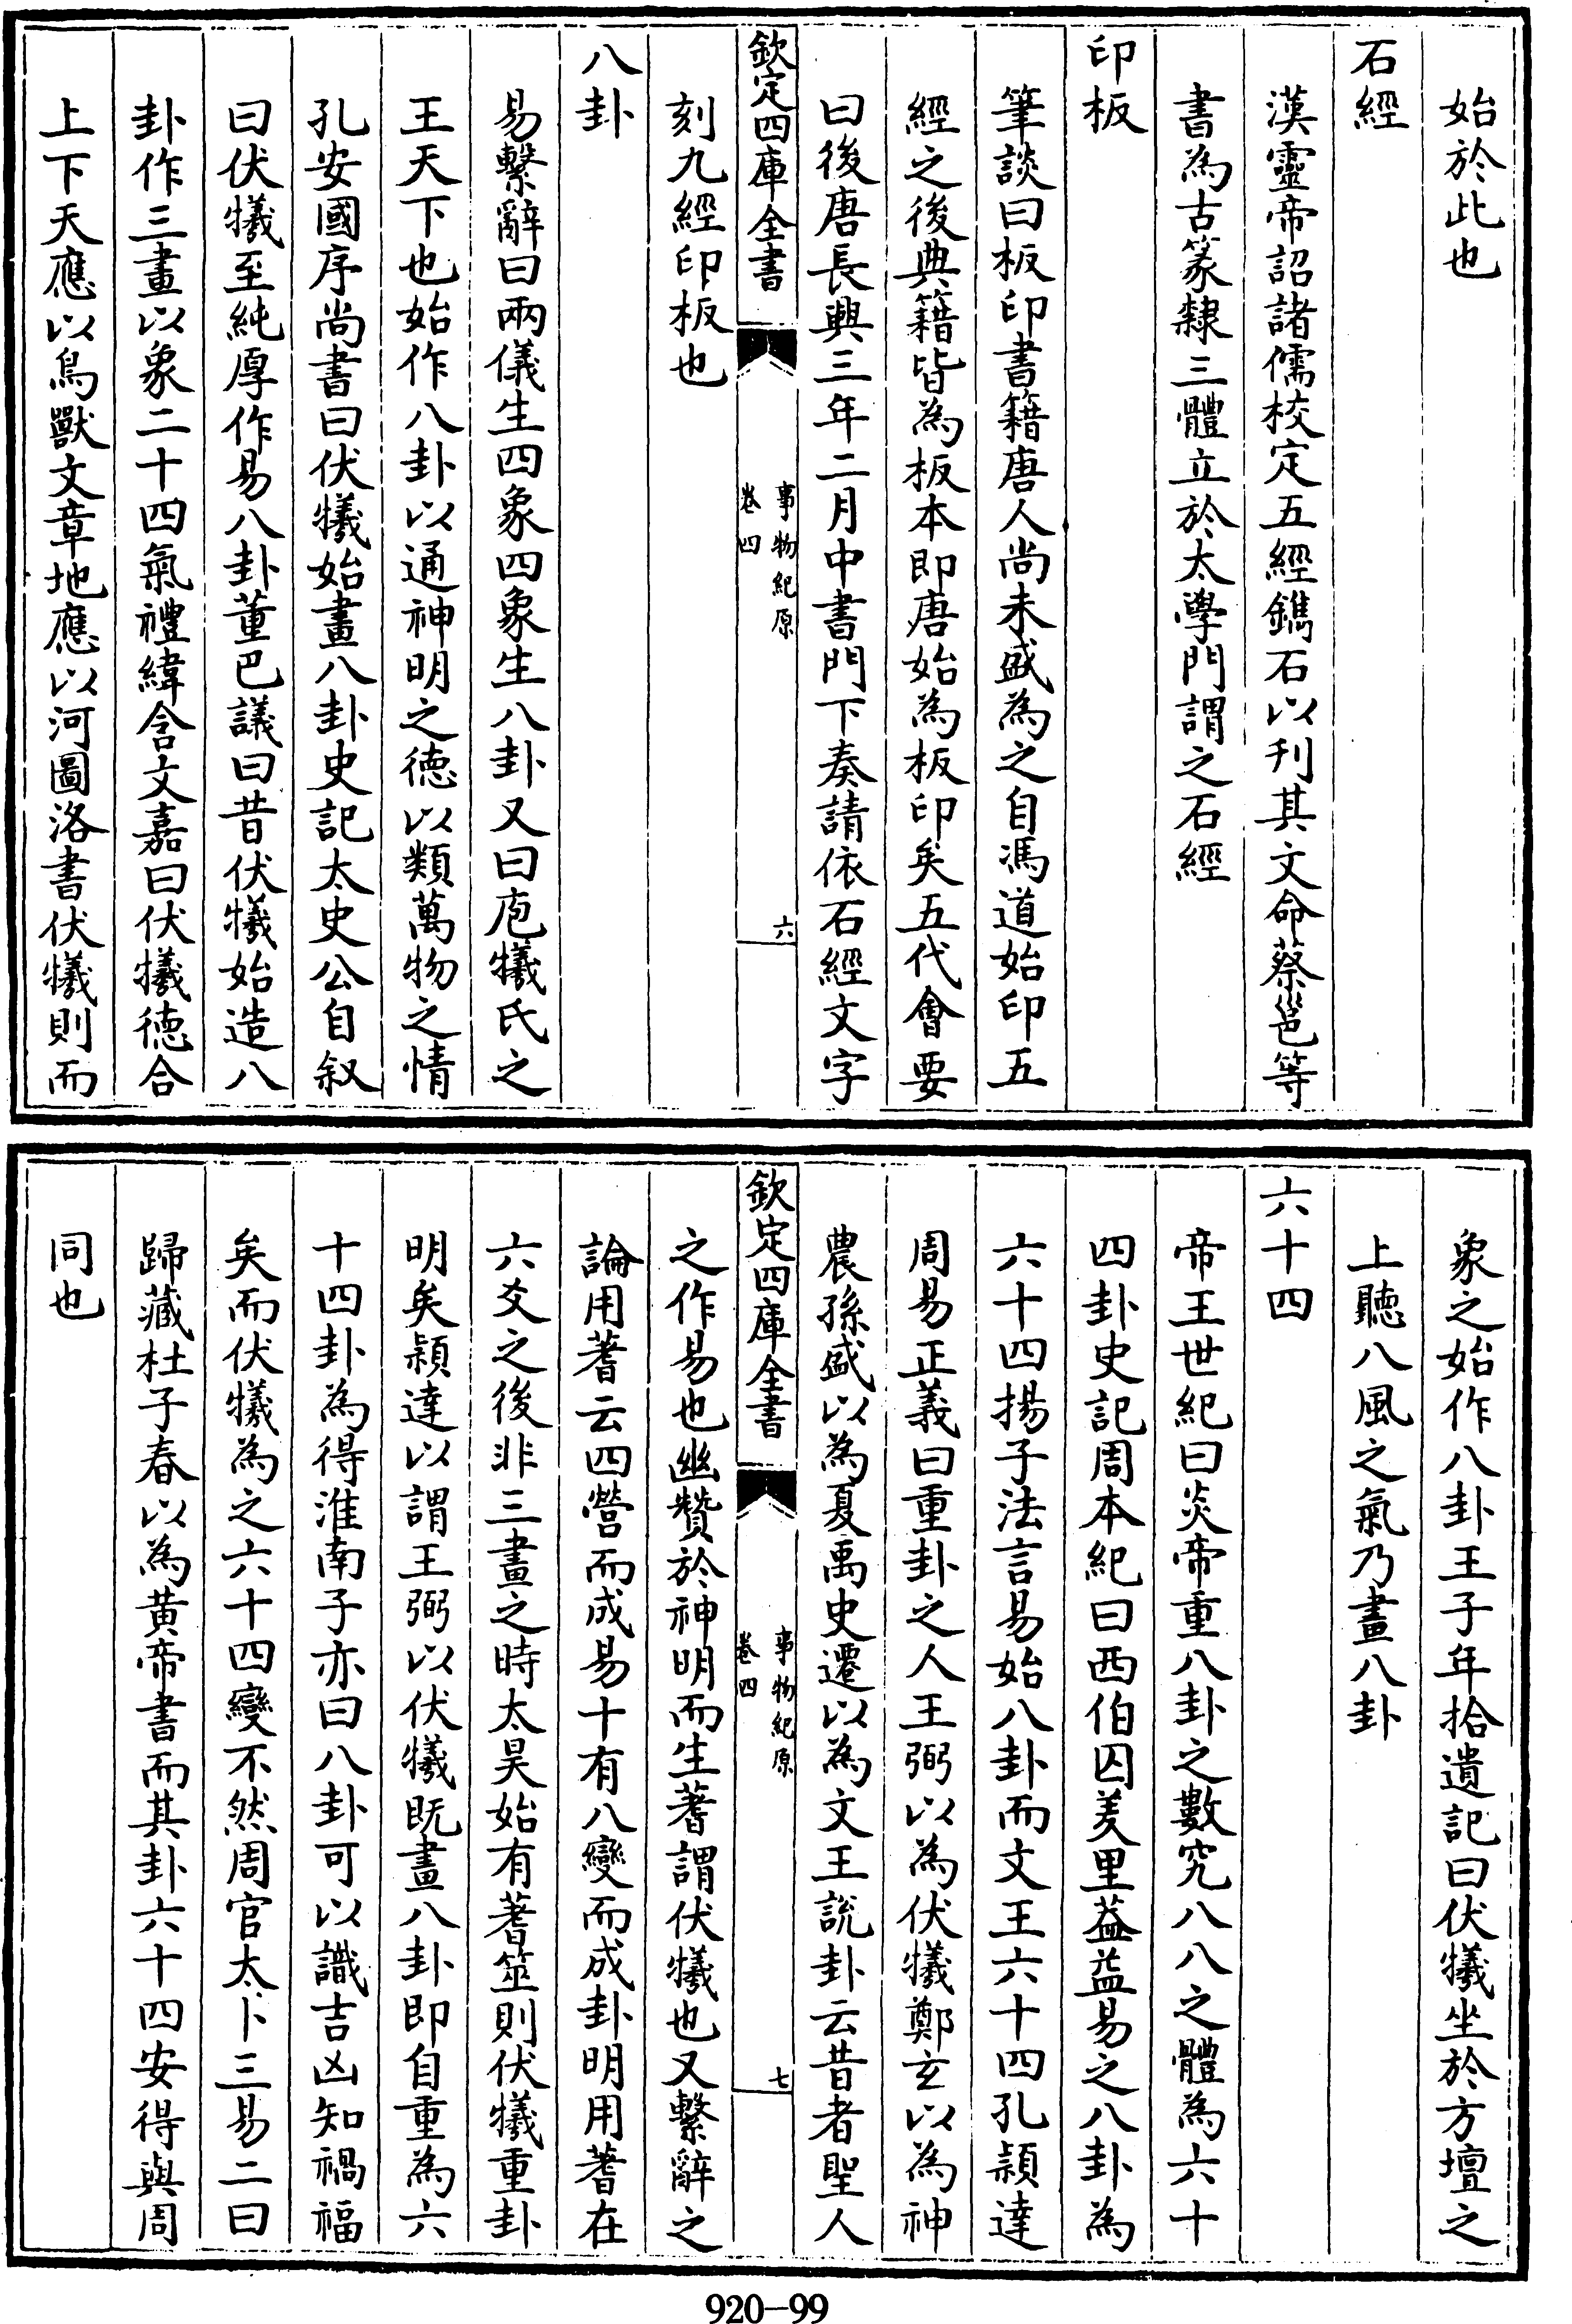 始於此也
石經
漢靈帝詔諸儒校定五經鐫石以刋其文命蔡邕等
書為古篆隸三體立於太學門謂之石經
印板
筆談曰板印書籍唐人尚未盛為之自馮道始印五
經之後典籍皆為板本即唐始為板印矣五代會要
曰後唐長興三年二月中書門下奏請依石經文字
欽定四庫全書
事物紀原
卷四
六
刻九經印板也
八卦
易繫辭曰兩儀生四象四象生八卦又曰庖犧氏之
王天下也始作八卦以通神明之德以類萬物之情
孔安國序尚書曰伏犧始畫八卦史記太史公自叙
曰伏犧至純厚作易八卦董巴議曰昔伏犧始造八
卦作三畫以象二十四氣禮緯含文嘉曰伏犧德合
上下天應以鳥獸文章地應以河圖洛書伏犧則而
象之始作八卦王子年拾遺記曰伏犧坐於方壇之
上聽八風之氣乃畫八卦
六十四
帝王世紀曰炎帝重八卦之數究八八之體為六十
四卦史記周本紀曰西伯囚羑里葢益易之八卦為
六十四揚子法言易始八卦而文王六十四孔穎達
周易正義曰重卦之人王弼以為伏犧鄭玄以為神
農孫盛以為夏禹史遷以為文王說卦云昔者聖人
欽定四庫全書
事物紀原
卷四
七
之作易也幽贊於神明而生蓍謂伏犧也又繫辭之
論用蓍云四營而成易十有八變而成卦明用蓍在
六爻之後非三畫之時太昊始有蓍筮則伏犧重卦
明矣穎達以謂王弼以伏犧既畫八卦即自重為六
十四卦為得淮南子亦曰八卦可以識吉凶知禍福
矣而伏犧為之六十四變不然周官太卜三易二曰
歸藏杜子春以為黄帝書而其卦六十四安得與周
同也
920-99